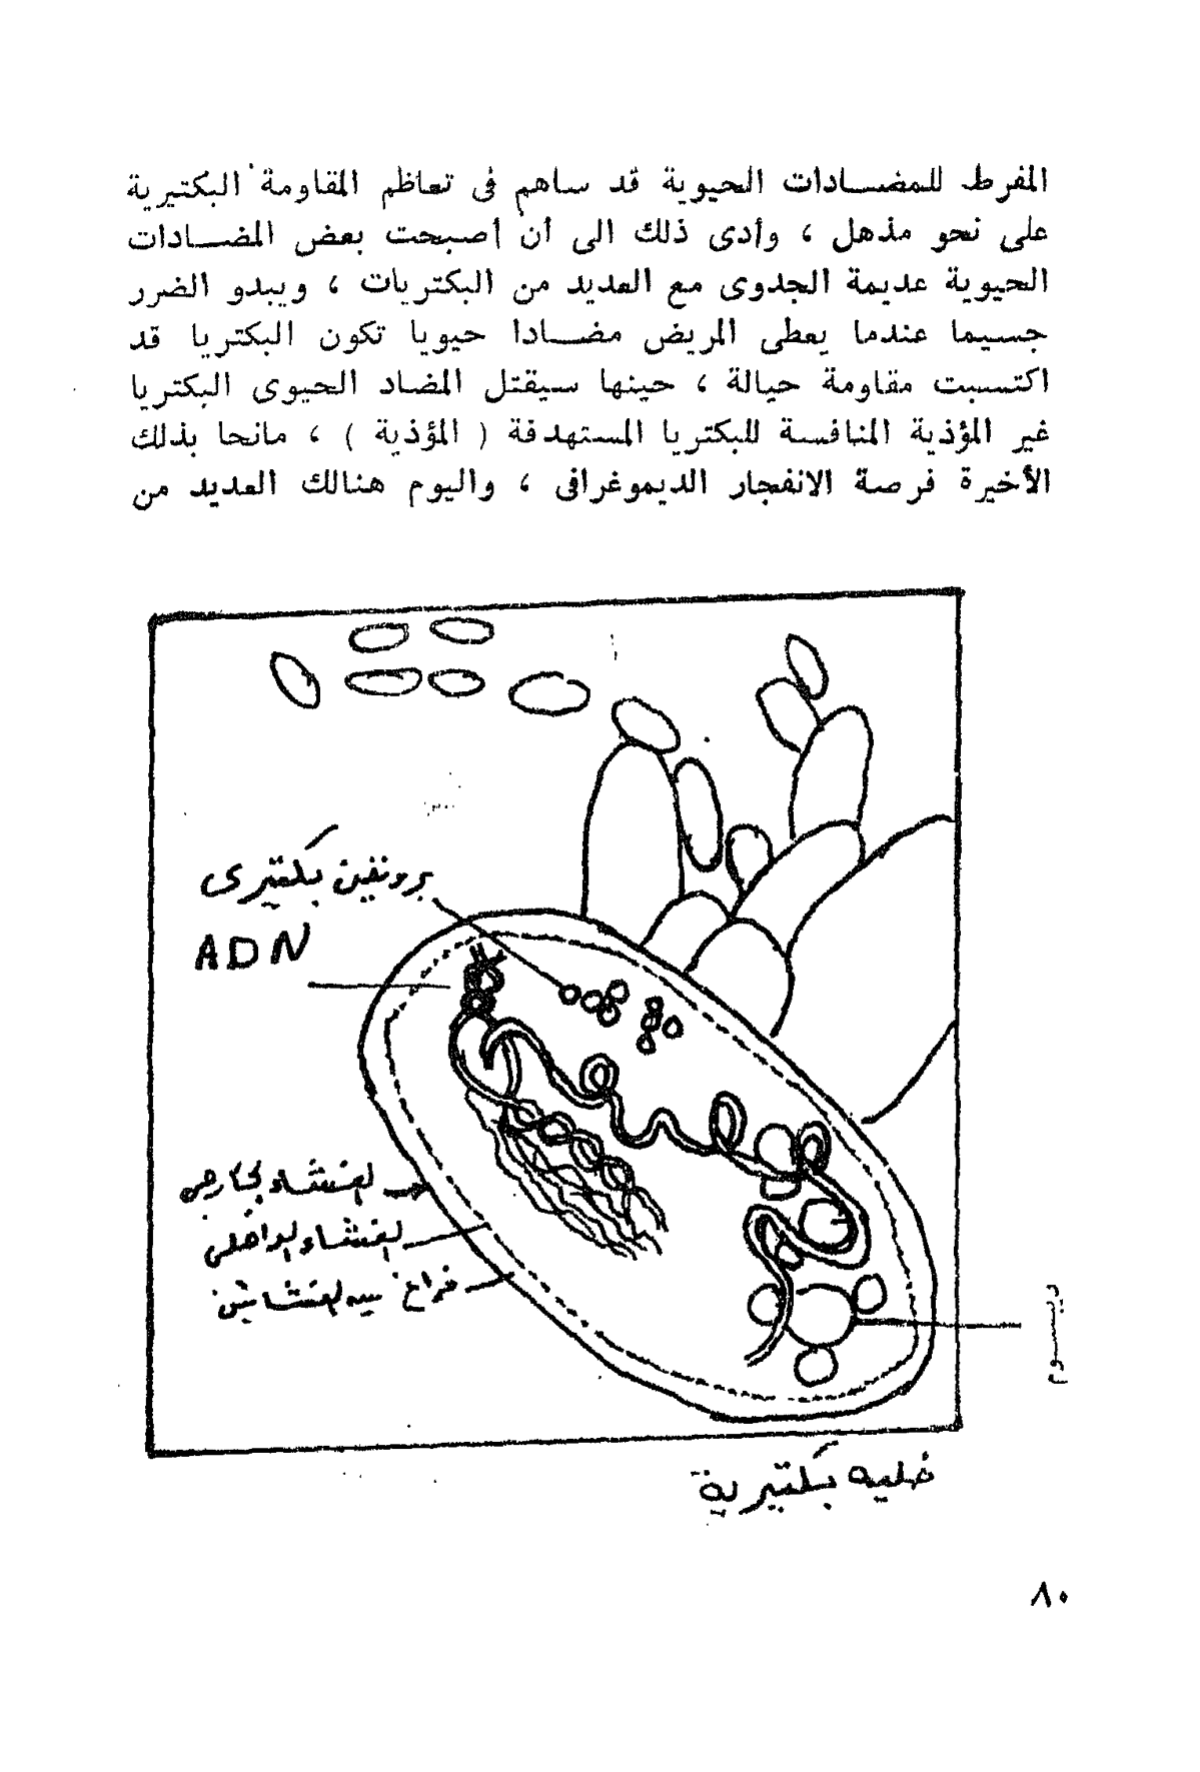 المفرط للمضادات الحيوية قد ساهم فى تعاظم المقاومة البكتيرية
على نحو مذهل ، وأدى ذلك الى أن أصبحت بعض المضادات
الحيوية عديمة الجدوى مع العديد من البكتريات ، ويبدو الضرر
جسيما عندما يعطى المريض مضادا حيويا تكون البكتريا قد
اكتسبت مقاومة حيالة ، حينها سيقتل المضاد الحيوى البكتريا
غير المؤذية المنافسة للبكتريا المستهدفة ( المؤذية ) ، مانحا بذلك
الأخيرة فرصة الانفجار الديموغرافى ، واليوم هنالك العديد من
بكتيرى
ADN
الغشاء الخارجى
الغشاء الداخلى
فراغ بين الغشائين
خليه بكتيرية
٨٠